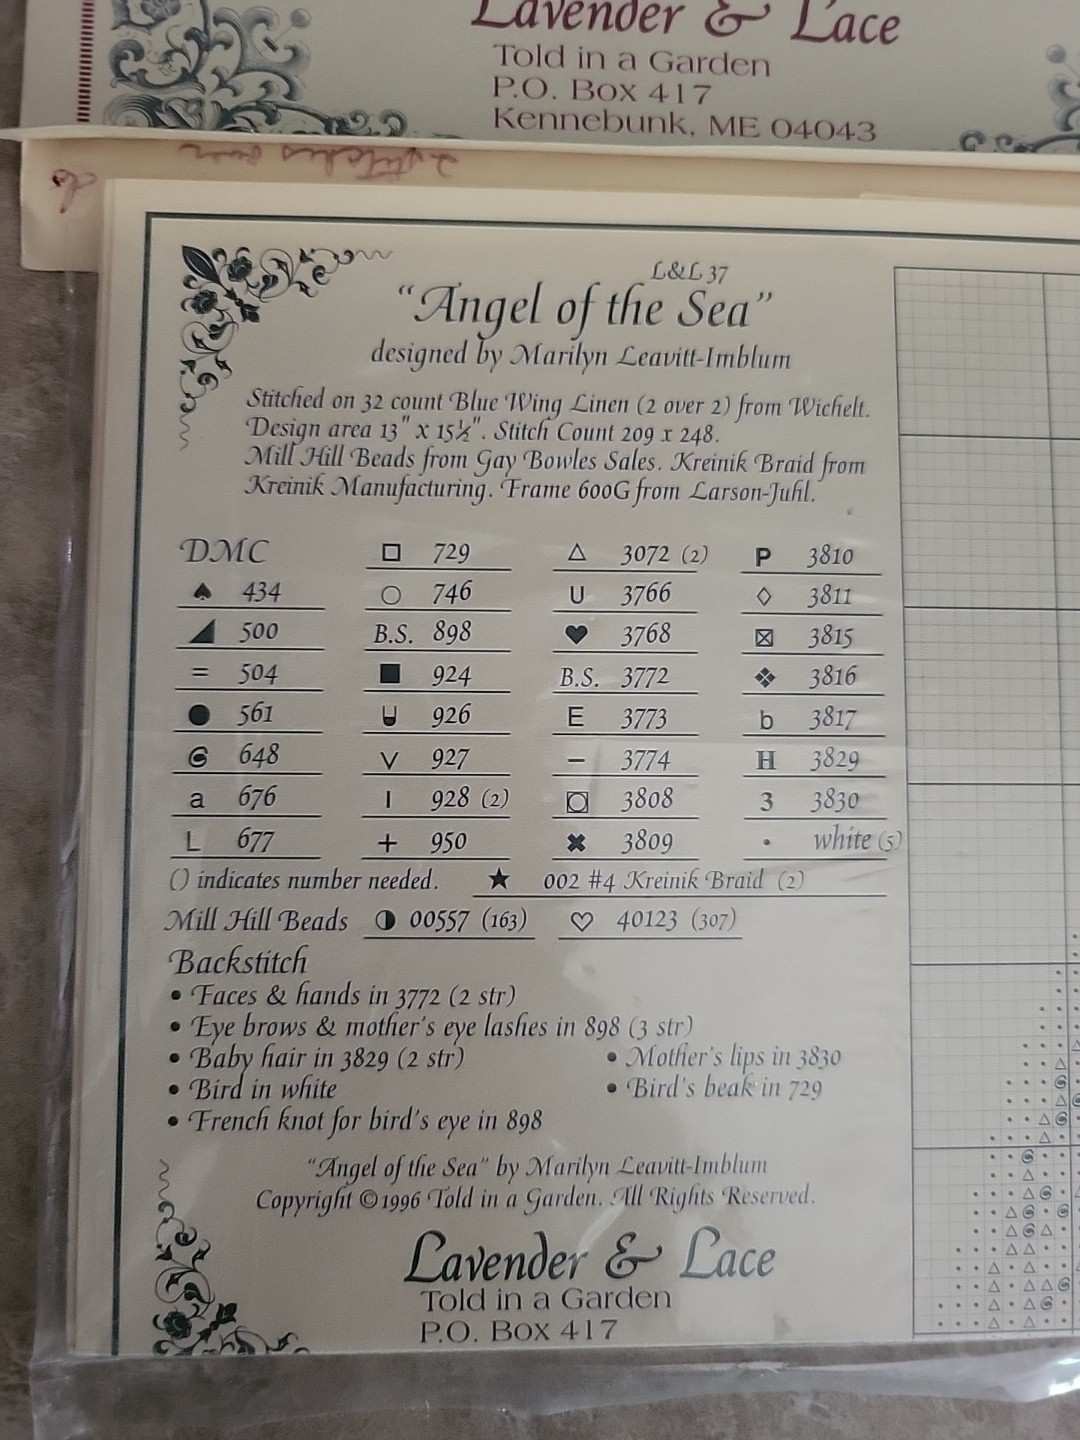 Lavender & Lace
Told in a Garden
P.O. Box 417
Kennebunk, ME 04043
2 stitches over
L&L 37
"Angel of the Sea"
designed by Marilyn Leavitt-Imblum
Stitched on 32 count Blue Wing Linen (2 over 2) from Wichelt.
Design area 13" x 15½". Stitch Count 209 x 248.
Mill Hill Beads from Gay Bowles Sales. Kreinik Braid from
Kreinik Manufacturing. Frame 600G from Larson-Juhl.
DMC □ 729 △ 3072 (2) P 3810
♠ 434 ○ 746 U 3766 ◇ 3811
◢ 500 B.S. 898 ♥ 3768 ⊠ 3815
= 504 ■ 924 B.S. 3772 ❖ 3816
● 561 926 E 3773 b 3817
648 V 927 – 3774 H 3829
a 676 I 928 (2) 3808 3 3830
L 677 + 950 ✖ 3809 • white (5)
() indicates number needed. ★ 002 #4 Kreinik Braid (2)
Mill Hill Beads ◑ 00557 (163) ♡ 40123 (307)
Backstitch
• Faces & hands in 3772 (2 str)
• Eye brows & mother's eye lashes in 898 (3 str)
• Baby hair in 3829 (2 str) • Mother's lips in 3830
• Bird in white • Bird's beak in 729
• French knot for bird's eye in 898
"Angel of the Sea" by Marilyn Leavitt-Imblum
Copyright ©1996 Told in a Garden. All Rights Reserved.
Lavender & Lace
Told in a Garden
P.O. Box 417